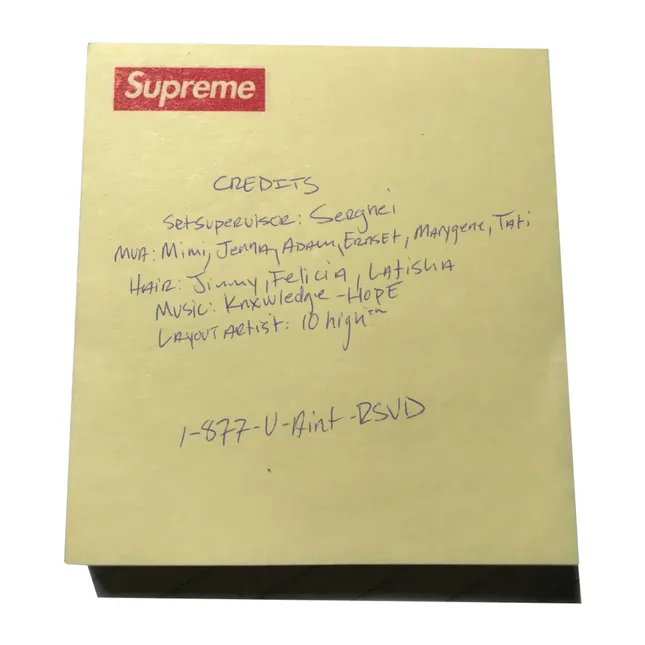 Supreme
CREDITS
Setsupervisor: Serghei
MUA: Mimi, Jenna, Adam, Ernset, Marygene, Tati
Hair: Jimmy, Felicia, Latisha
Music: Knxwledge - HOPE
Layout Artist: 10 high™
1-877-U-Aint-RSVD